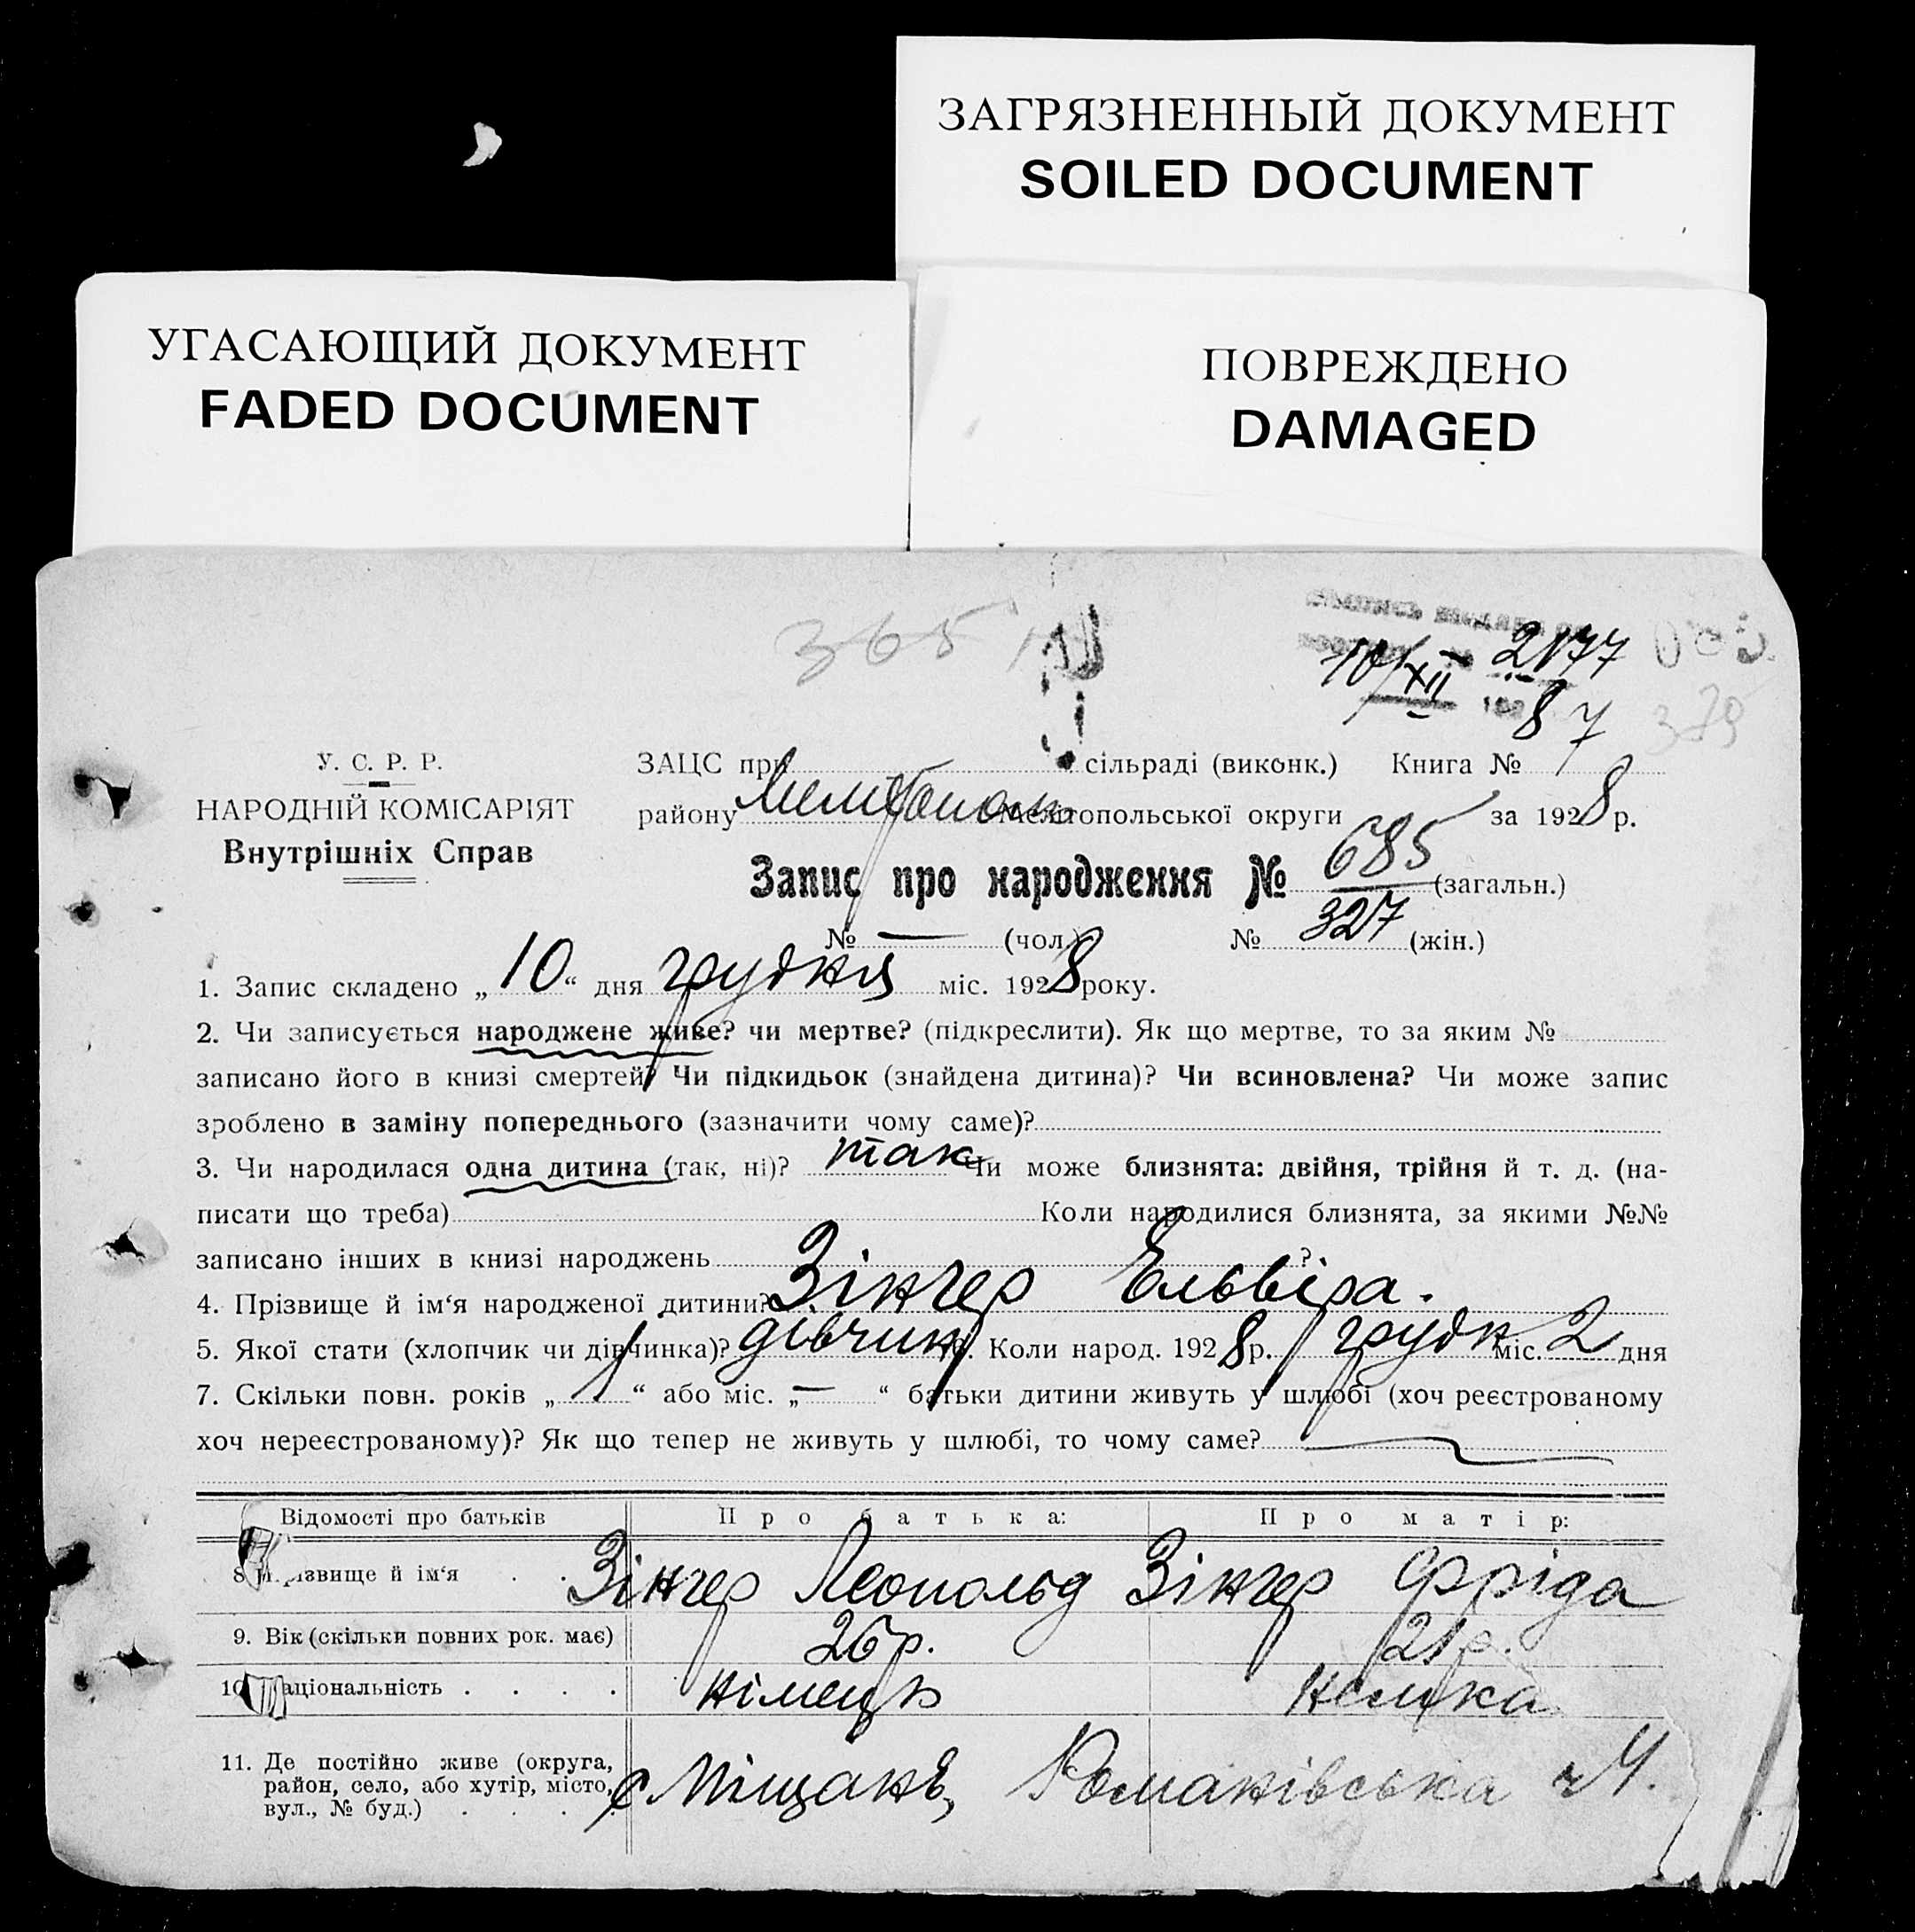 ЗАГРЯЗНЕННЫЙ ДОКУМЕНТ
SOILED DOCUMENT
УГАСАЮЩИЙ ДОКУМЕНТ
FADED DOCUMENT
ПОВРЕЖДЕНО
DAMAGED
365
10/XII 2177
87
379
У. С. Р. Р.
НАРОДНІЙ КОМІСАРІЯТ
Внутрішніх Справ
ЗАЦС при сільраді (виконк.) Книга № 7
району Мелітополь Мелітопольської округи за 1928 р.
Запис про народження № 685 (загальн.)
№ — (чол.) № 327 (жін.)
1. Запис складено „10“ дня грудня міс. 1928 року.
2. Чи записується народжене живе? чи мертве? (підкреслити). Як що мертве, то за яким №
записано його в книзі смертей? Чи підкидьок (знайдена дитина)? Чи всиновлена? Чи може запис
зроблено в заміну попереднього (зазначити чому саме)?
3. Чи народилася одна дитина (так, ні)? так Чи може близнята: двійня, трійня й т. д. (на-
писати що треба) Коли народилися близнята, за якими №№
записано інших в книзі народжень ?
4. Прізвище й ім‘я народженої дитини? Зінгер Ельвіра.
5. Якої стати (хлопчик чи дівчинка)? дівчинк 6. Коли народ. 1928 р. грудн міс. 2 дня
7. Скільки повн. років „1“ або міс. „—“ батьки дитини живуть у шлюбі (хоч реєстрованому
хоч нереєстрованому)? Як що тепер не живуть у шлюбі, то чому саме?
Відомості про батьків Про батька: Про матір:
8. Прізвище й ім‘я . . Зінгер Леопольд Зінгер Фріда
9. Вік (скільки повних рок. має) 26 р. 21 р.
10. Національність . . . . німець німка
11. Де постійно живе (округа,
район, село, або хутір, місто,
вул., № буд.) . . . с Міщане, Романівська ч 4.